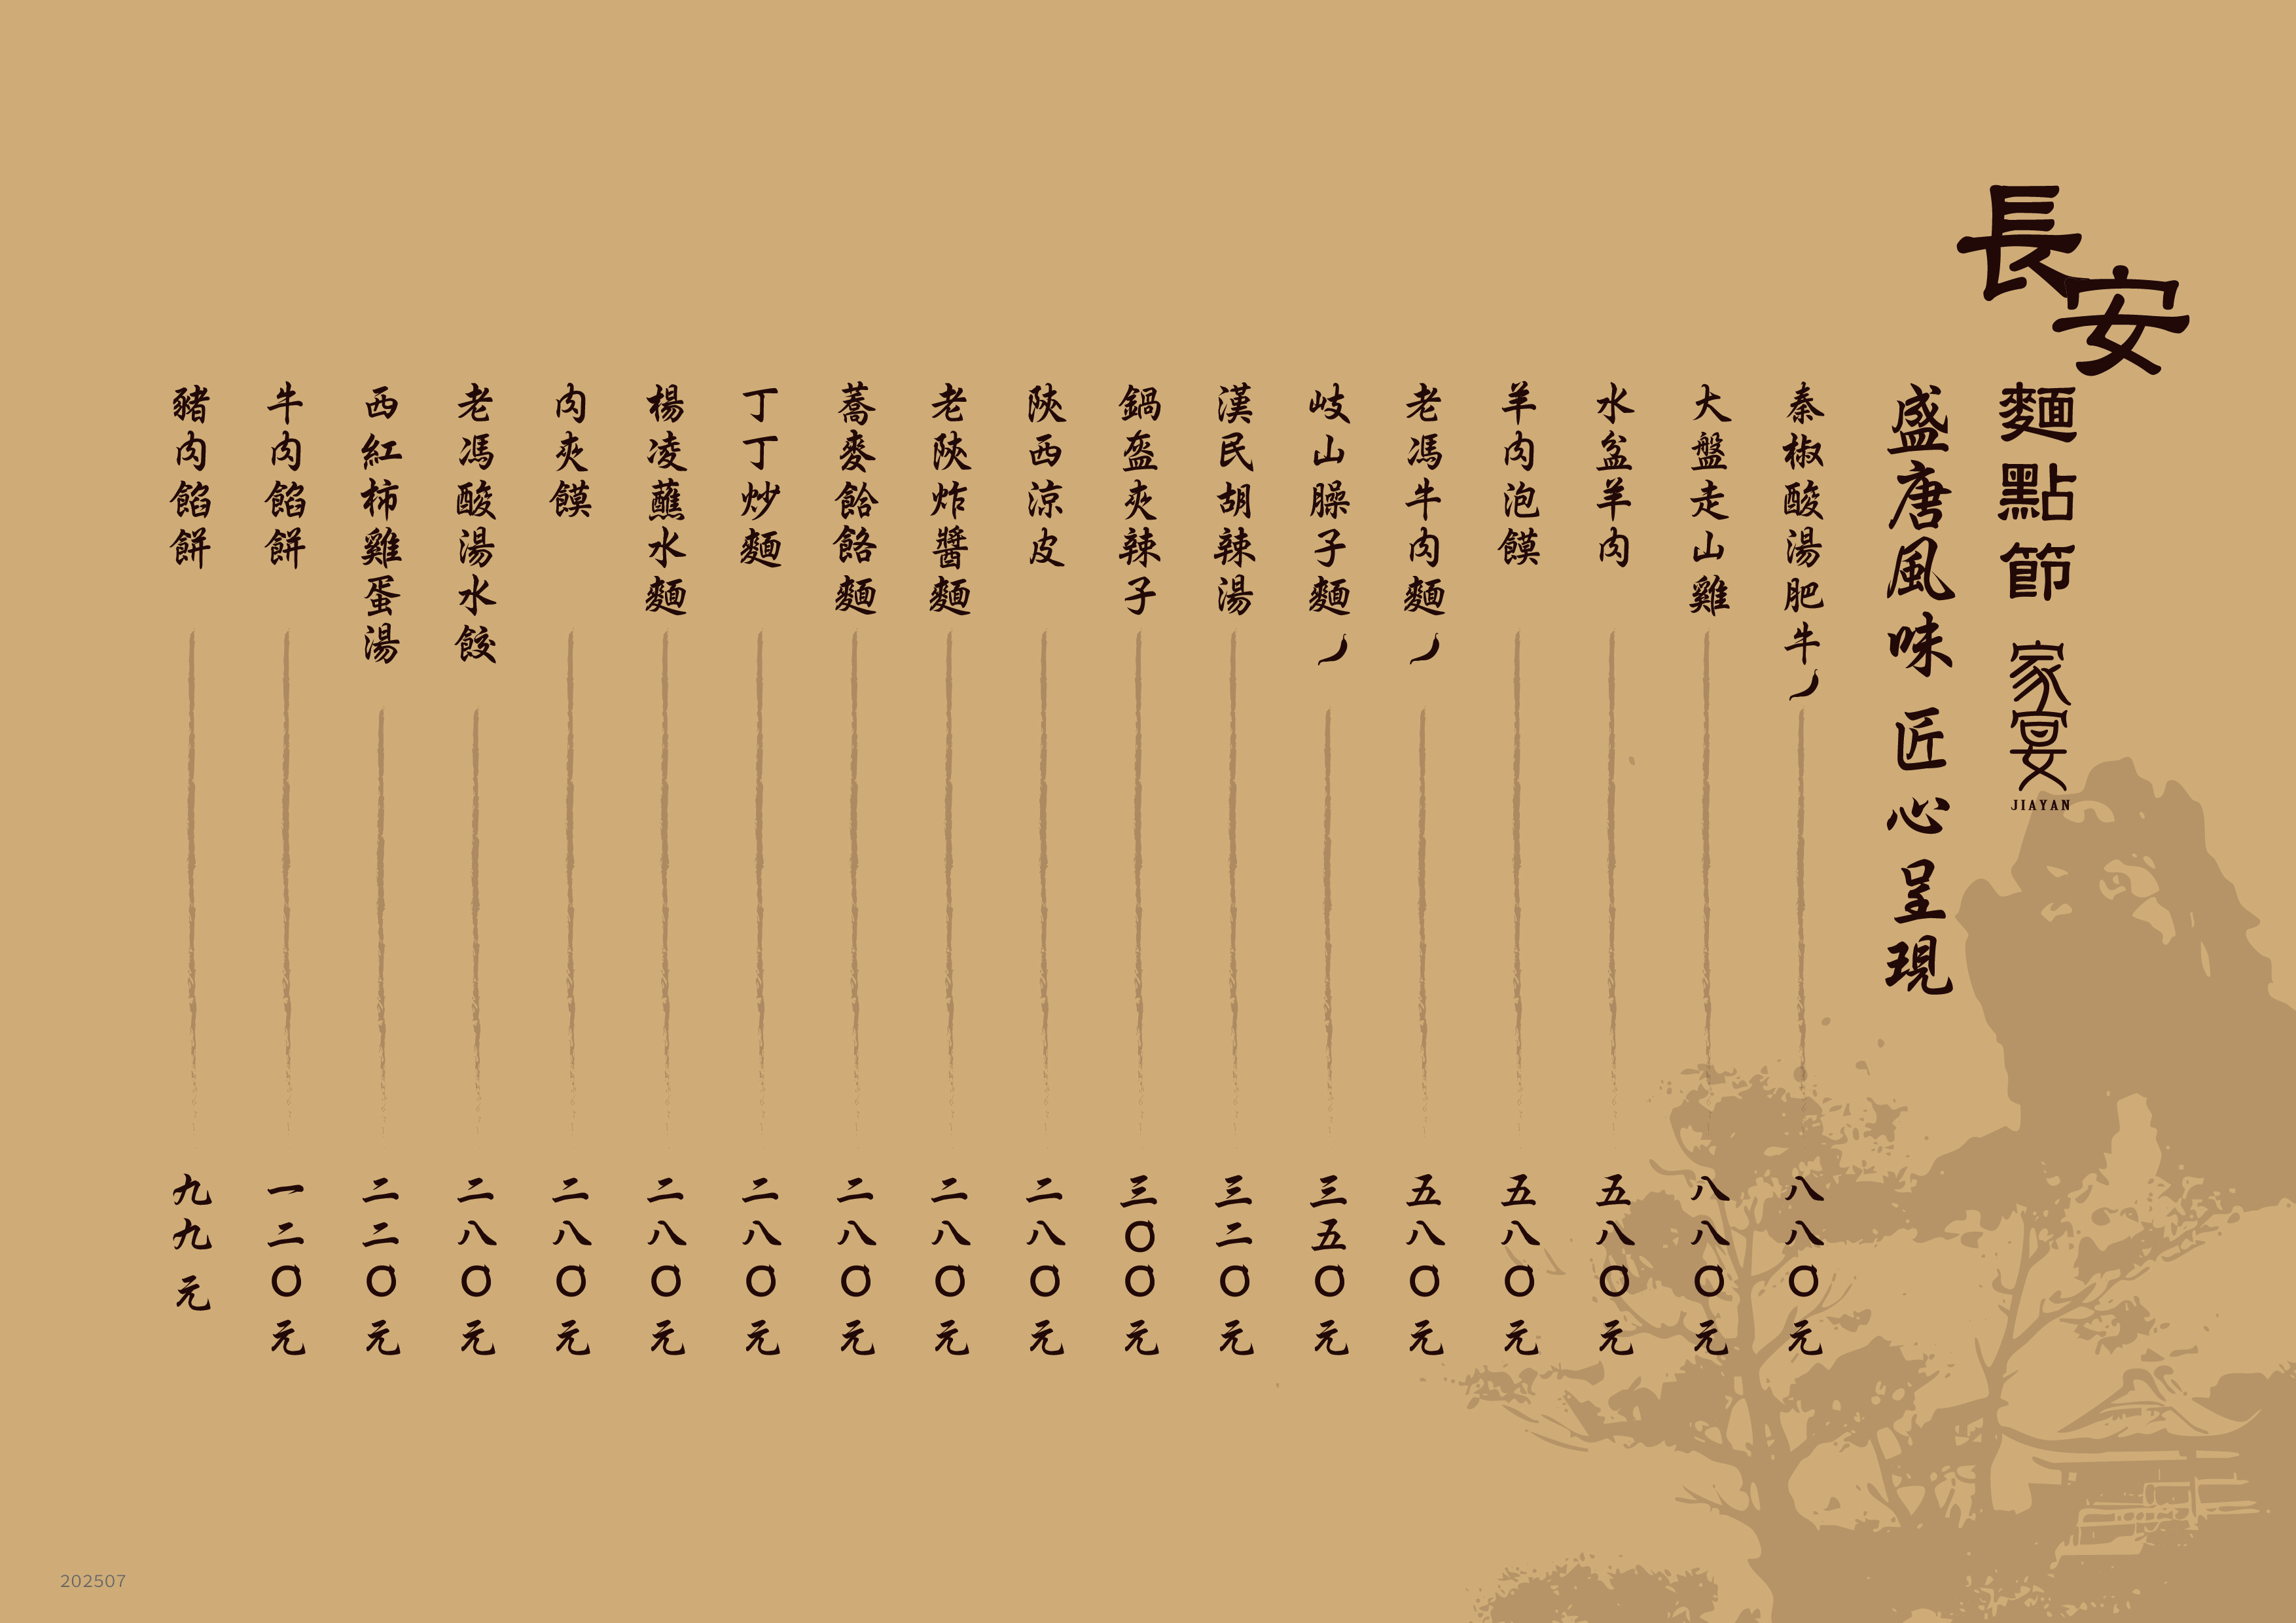 長安
麵點節
家宴
JIAYAN
盛唐風味 匠心呈現
秦椒酸湯肥牛 八八〇元
大盤走山雞 八八〇元
水盆羊肉 五八〇元
羊肉泡饃 五八〇元
老馮牛肉麵 五八〇元
岐山臊子麵 三五〇元
漢民胡辣湯 三二〇元
鍋盔夾辣子 三〇〇元
陝西涼皮 二八〇元
老陝炸醬麵 二八〇元
蕎麥餄餎麵 二八〇元
丁丁炒麵 二八〇元
楊凌蘸水麵 二八〇元
肉夾饃 二八〇元
老馮酸湯水餃 二八〇元
西紅柿雞蛋湯 二二〇元
牛肉餡餅 一二〇元
豬肉餡餅 九九元
202507